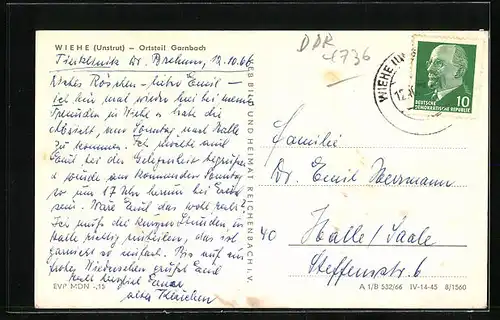 WIEHE (Unstrut) – Ortsteil Garnbach
Tierklinik Dr. Brehm, 12.10.66
Liebes Röschen – lieber Emil –
ich bin mal wieder hier bei meinen
Freunden in Wiehe u. habe die
Absicht, am Sonntag nach Halle
zu kommen. Ich möchte auch
Euch bei der Gelegenheit begrüßen
u. würde am kommenden Sonntag
so um 17 Uhr herum bei Euch
sein. Wäre Euch das wohl recht?
Ich muß die kurzen Stunden in
Halle richtig einteilen, das ist
garnicht so einfach. Bis auf ein
frohes Wiedersehen grüßt Euch
recht herzlich Euer
altes Klärchen
EVP MDN -,15
VEB BILD UND HEIMAT REICHENBACH I. V.
DDR
4736
WIEHE (U
12.
DEUTSCHE
DEMOKRATISCHE REPUBLIK
10
Familie
Dr. Emil Herrmann
40 Halle / Saale
Steffensstr. 6
A 1/B 532/66 IV-14-45 8/1560